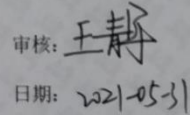 审核：王静
日期：2021-05-31